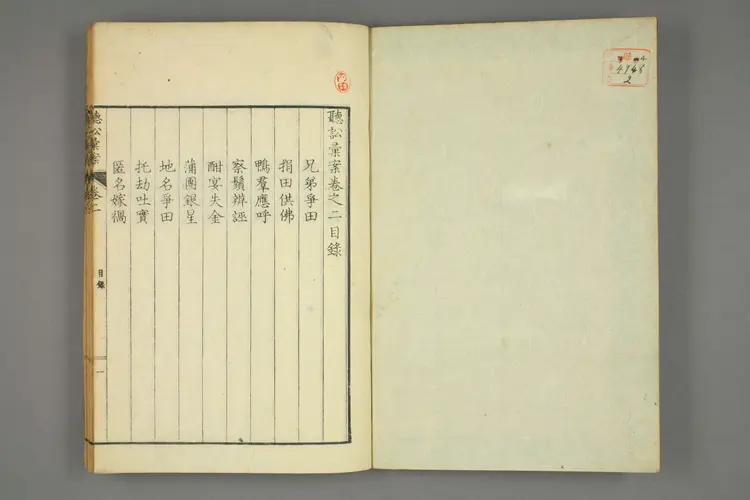 聽訟彙案卷之二目錄
兄弟爭田
捐田供佛
鴨羣應呼
察鬚辨誣
酣宴失金
蒲團銀星
地名爭田
托劫吐實
匿名嫁禍
聽訟彙案 卷之二
目錄
一
4948
2